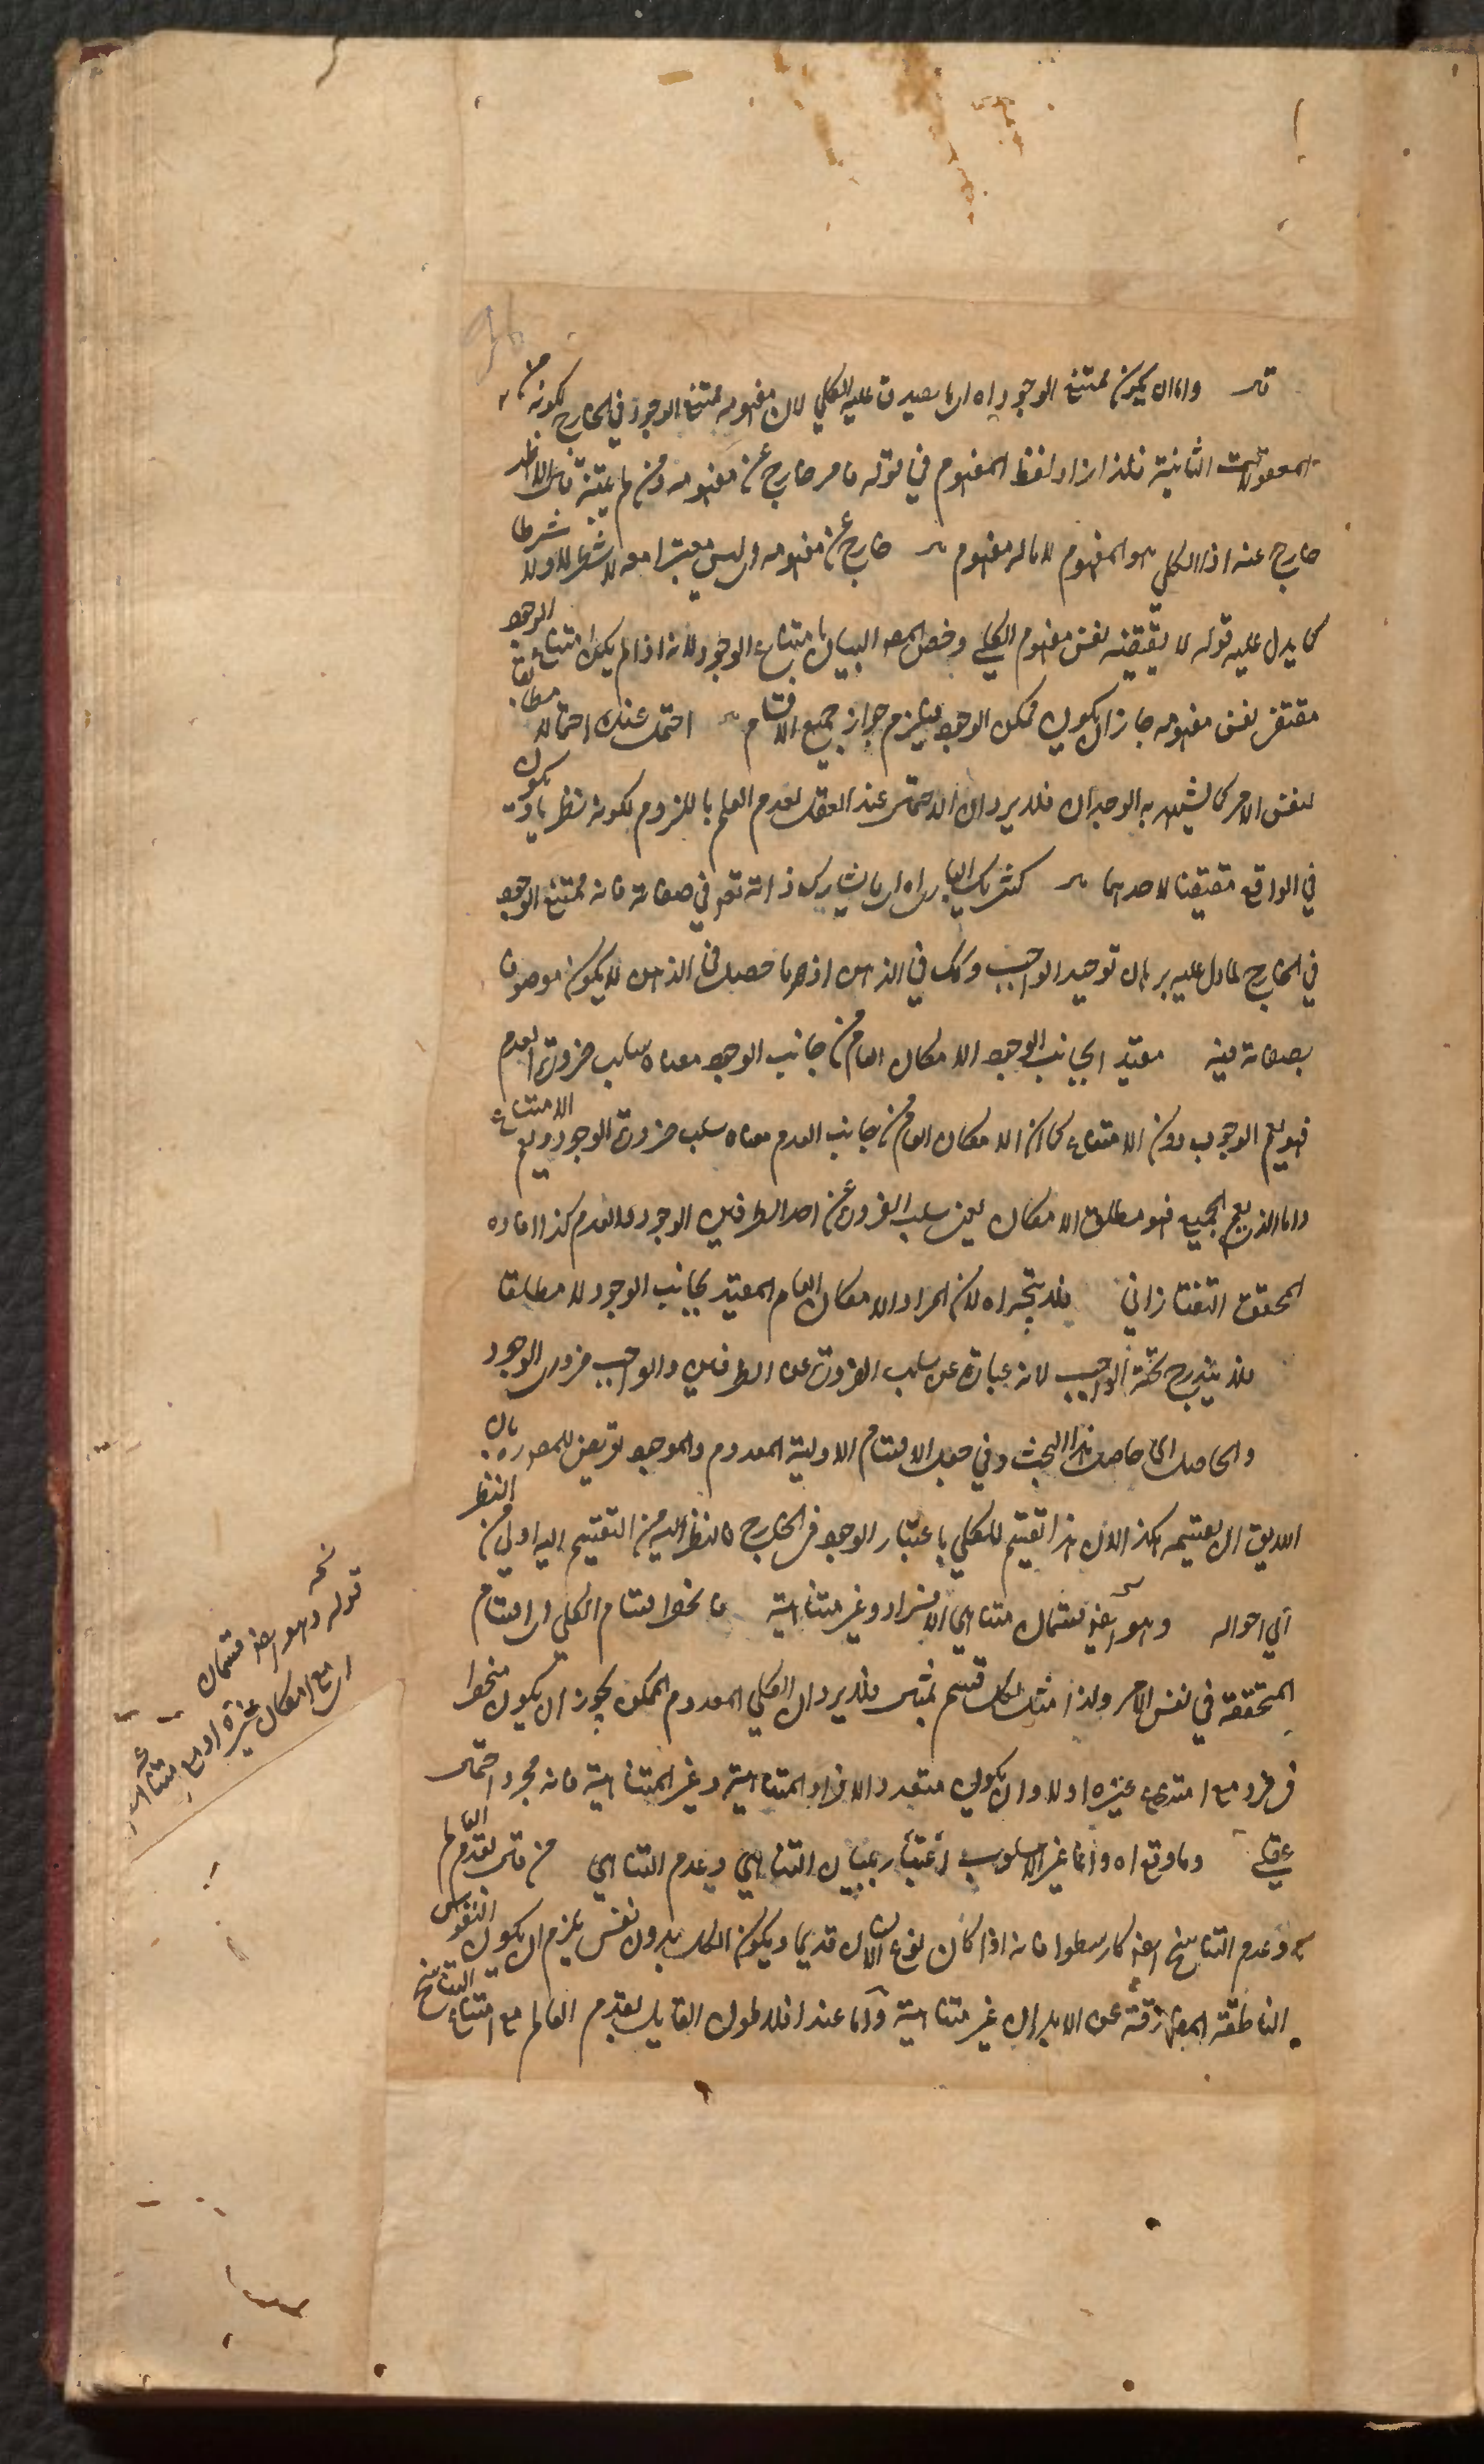 قال واما ان يكون ممتنع الوجود اه اى ما يصدق عليه الكلي لان مفهومه ممتنع الوجود في الخارج لكونه من
المعقولات الثانية فلذا زاد لفظ المفهوم في قوله خارج عن مفهومه
خارج عنه اذ الكلي هو المفهوم لا ما له مفهوم خارج عن مفهومه وليس معتبرا معه لا شطرا ولا شرطا
كما يدل عليه قوله لا يقتضيه نفس مفهوم الكلي وخص المص البيان بامتناع الوجود لانه اذا لم يكن امتناع الوجود
مقتضى نفس مفهومه جاز ان يكون ممكن الوجود فيلزم جواز جميع الاقسام احتمل عند العقل احتمالا مطابقا
لنفس الامر كما يشهد به الوجدان فلا يرد ان الاحتمال عند العقل لعدم العلم باللزوم لكونه نظريا وقد يكون
في الواقع مقتضيا لاحدهما كشريك الباري اه اى ما يشارك ذاته تعم في صفاته فانه ممتنع الوجود
في الخارج لما دل عليه برهان توحيد الواجب وكك في الذهن اذ ما حصل في الذهن لا يكون موصوفا
بصفاته فيه مقيد بجانب الوجود الامكان العام من جانب الوجود معناه سلب ضرورة العدم
فهو يعم الوجوب دون الامتناع كما ان الامكان العام من جانب العدم معناه سلب ضرورة الوجود ويعم الامتناع
واما الذي يعم الجميع فهو مطلق الامكان يعني سلب الضرورة عن احد الطرفين الوجود والعدم كذا افاده
المحقق التفتازاني فلا يتجه اه لان المراد الامكان العام المقيد بجانب الوجود لا مطلقا
فلا يندرج تحته الواجب لانه عبارة عن سلب الضرورة عن الطرفين والواجب ضروري الوجود
والحاصل اى حاصل هذا البحث وفي جعل الاقسام الاولية المعدوم والموجود تعريض للمص ره بان
اللايق ان يقسمه هكذا لان هذا تقسيم للكلي باعتبار الوجود في الخارج فالنظر اليه من التقسيم اليه اولى من النظر
الى احواله وهو ايضا قسمان متناهي الافراد وغير متناهية فانحصر اقسام الكلي اى اقسام
المتحققة في نفس الامر ولذا مثل لكل قسم بمثال فلا يرد ان الكلي المعدوم الممكن يجوز ان يكون منحصرا
في فرد مع امتناع غيره او لا وان يكون متعدد الافراد المتناهية وغير المتناهية فانه مجرد احتمال
عقلي وما وقع اه وانما غير الاسلوب اعتبار ببيان التناهي وعدم التناهي من قال بقدم العالم
وعدم التناسخ ايضا كارسطو فانه اذا كان نوع الانسان قديما ويكون لكل بدن نفس يلزم ان يكون النفوس
الناطقة المفارقة عن الابدان غير متناهية واما عند افلاطون القايل بقدم العالم مع امتناع التناسخ
قوله وهو ايضا قسمان
اى مع امكان غيره او مع امتناعه